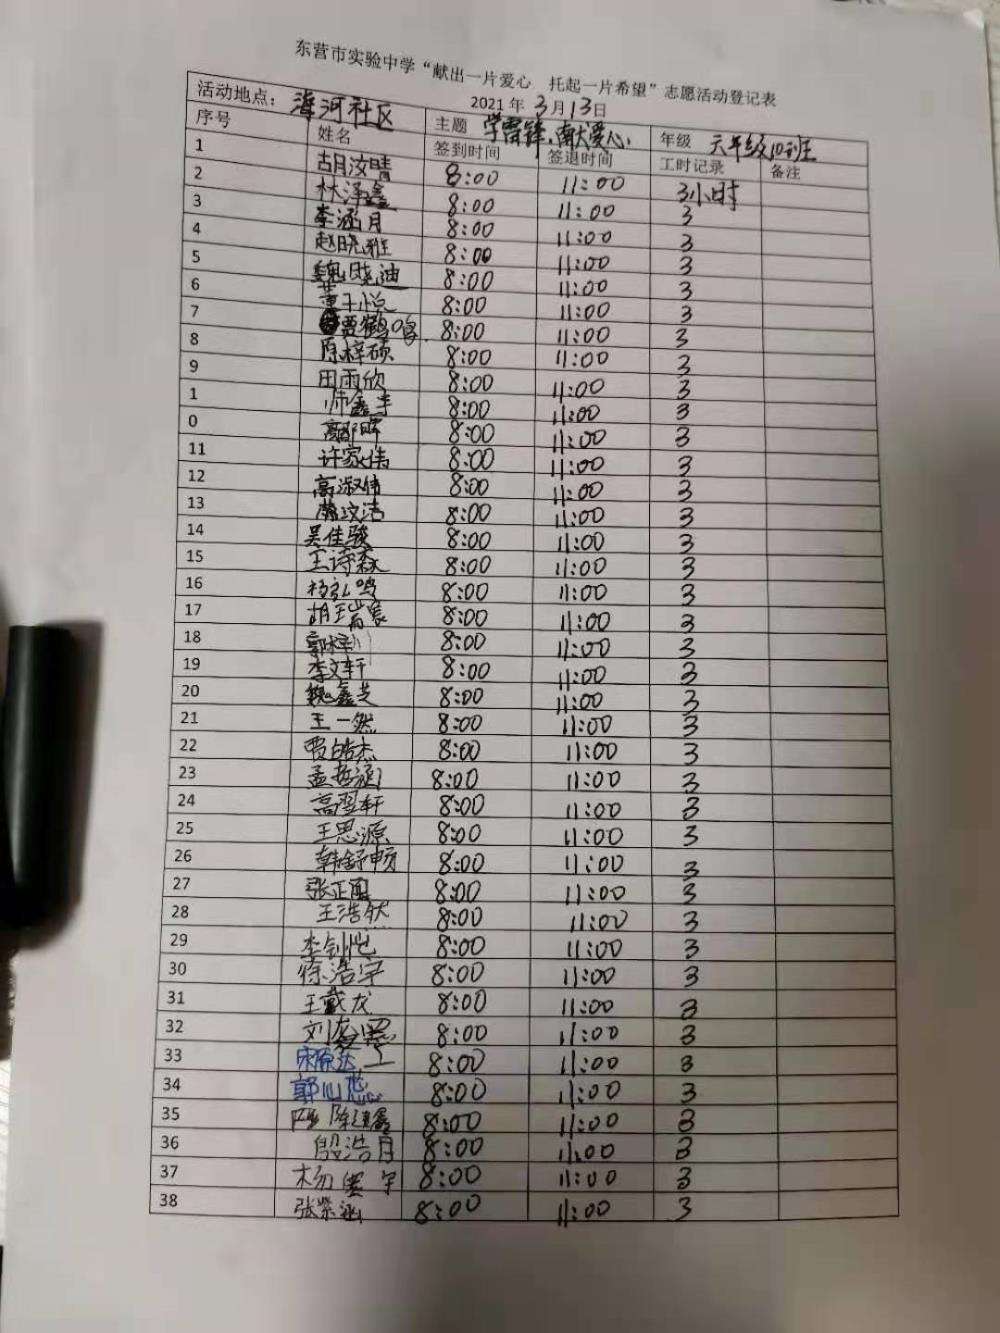 东营市实验中学“献出一片爱心 托起一片希望”志愿活动登记表
2021年3月13日
活动地点: 河社区 主题 学雷锋,献大爱心. 年级 六年级10班
序号 姓名 签到时间 签退时间 工时记录 备注
1 胡汝晴 8:00 11:00 3小时
2 林泽鑫 8:00 11:00 3
3 李涵月 8:00 11:00 3
4 赵晓雅 8:00 11:00 3
5 魏晓迪 8:00 11:00 3
6 董 悦 8:00 11:00 3
7 贾鹤鸣 8:00 11:00 3
8 原梓硕 8:00 11:00 3
9 田雨欣 8:00 11:00 3
1 帅鑫 8:00 11:00 3
0 8:00 11:00 3
11 许家伟 8:00 11:00 3
12 高淑伟 8:00 11:00 3
13 汶洁 8:00 11:00 3
14 吴佳骏 8:00 11:00 3
15 王诗森 8:00 11:00 3
16 杨弘鸣 8:00 11:00 3
17 胡瑞宸 8:00 11:00 3
18 郭 8:00 11:00 3
19 李文轩 8:00 11:00 3
20 魏鑫芝 8:00 11:00 3
21 王一然 8:00 11:00 3
22 贾皓杰 8:00 11:00 3
23 孟哲涵 8:00 11:00 3
24 高翌轩 8:00 11:00 3
25 王思源 8:00 11:00 3
26 韩舒畅 8:00 11:00 3
27 张正 8:00 11:00 3
28 王浩然 8:00 11:00 3
29 李钊 8:00 11:00 3
30 徐浩宇 8:00 11:00 3
31 王戴龙 8:00 11:00 3
32 刘 8:00 11:00 3
33 8:00 11:00 3
34 郭心蕊 8:00 11:00 3
35 陈 鑫 8:00 11:00 3
36 殷浩月 8:00 11:00 3
37 杨 宇 8:00 11:00 3
38 张紫涵 8:00 11:00 3